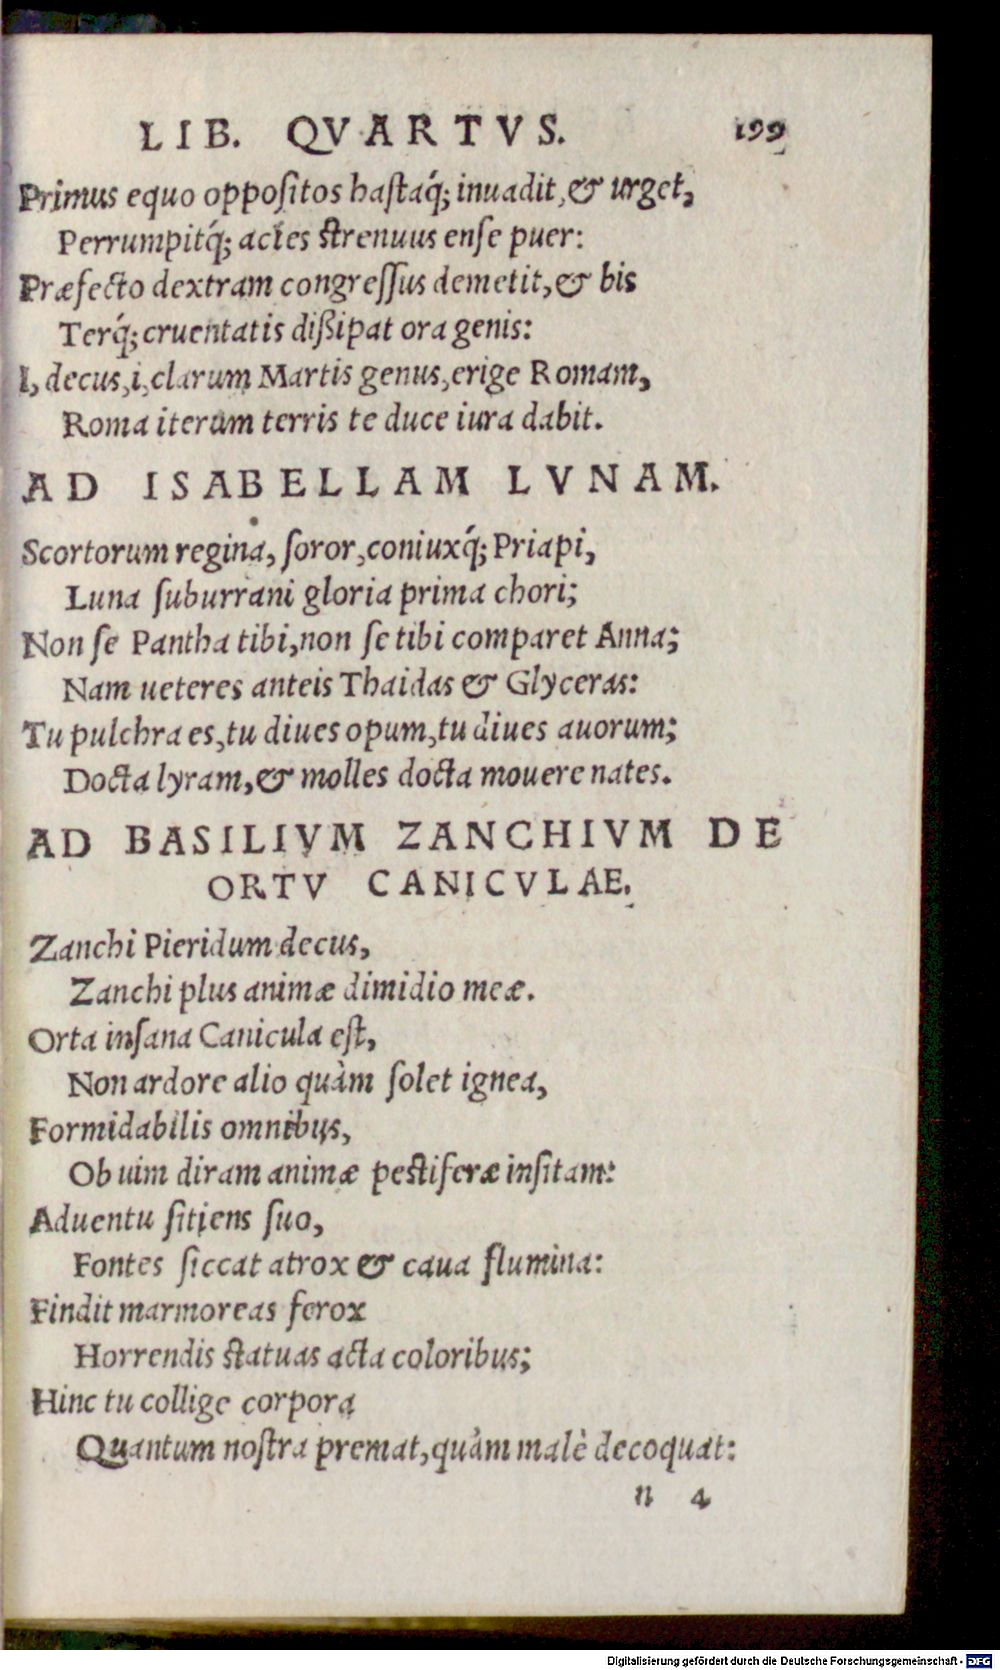 LIB. QVARTVS. 199
Primus equo oppoſitos haſtaq́; inuadit, & urget,
Perrumpitq́; acies ſtrenuus enſe puer:
Præfecto dextram congreſſus demetit, & bis
Terq́; cruentatis dißipat ora genis:
I, decus, i, clarum Martis genus, erige Romam,
Roma iterum terris te duce iura dabit.
AD ISABELLAM LVNAM.
Scortorum regina, ſoror, coniuxq́; Priapi,
Luna ſuburrani gloria prima chori;
Non ſe Pantha tibi, non ſe tibi comparet Anna;
Nam ueteres anteis Thaidas & Glyceras:
Tu pulchra es, tu diues opum, tu diues auorum;
Docta lyram, & molles docta mouere nates.
AD BASILIVM ZANCHIVM DE
ORTV CANICVLAE.
Zanchi Pieridum decus,
Zanchi plus animæ dimidio meæ.
Orta inſana Canicula eſt,
Non ardore alio quàm ſolet ignea,
Formidabilis omnibus,
Ob uim diram animæ peſtiferæ inſitam:
Aduentu ſitiens ſuo,
Fontes ſiccat atrox & caua flumina:
Findit marmoreas ferox
Horrendis ſtatuas acta coloribus;
Hinc tu collige corpora
Quantum noſtra premat, quàm malè decoquat:
n 4
Digitalisierung gefördert durch die Deutsche Forschungsgemeinschaft - DFG